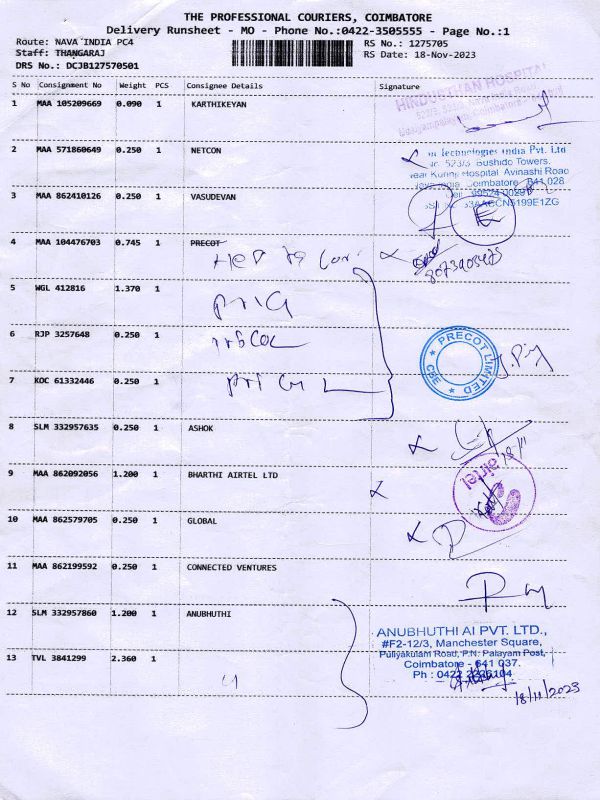 THE PROFESSIONAL COURIERS, COIMBATORE
Delivery Runsheet - MO - Phone No.:0422-3505555 - Page No.:1
Route: NAVA INDIA PC4
Staff: THANGARAJ
DRS No.: DCJB127570501
RS No.: 1275705
RS Date: 18-Nov-2023
S No Consignment No Weight PCS Consignee Details Signature
1 MAA 105209669 0.090 1 KARTHIKEYAN
HINDUSTHAN HOSPITAL
2 MAA 571860649 0.250 1 NETCON
Technologies India Pvt. Ltd
523/3 Bushido Towers.
Hospital, Avinashi Road
Coimbatore 641 028
3 MAA 862410126 0.250 1 VASUDEVAN
4 MAA 104476703 0.745 1 PRECOT
5 WGL 412816 1.370 1
6 RJP 3257648 0.250 1
PRECOT LIMITED
CBE
7 KOC 61332446 0.250 1
8 SLM 332957635 0.250 1 ASHOK
18/11
9 MAA 862092056 1.200 1 BHARTHI AIRTEL LTD
airtel
10 MAA 862579705 0.250 1 GLOBAL
11 MAA 862199592 0.250 1 CONNECTED VENTURES
12 SLM 332957860 1.200 1 ANUBHUTHI
ANUBHUTHI AI PVT. LTD.,
#F2-12/3, Manchester Square,
Puliyakulam Road, P.N. Palayam Post,
Coimbatore - 641 037.
13 TVL 3841299 2.360 1
Ph : 0422
18/11/2023